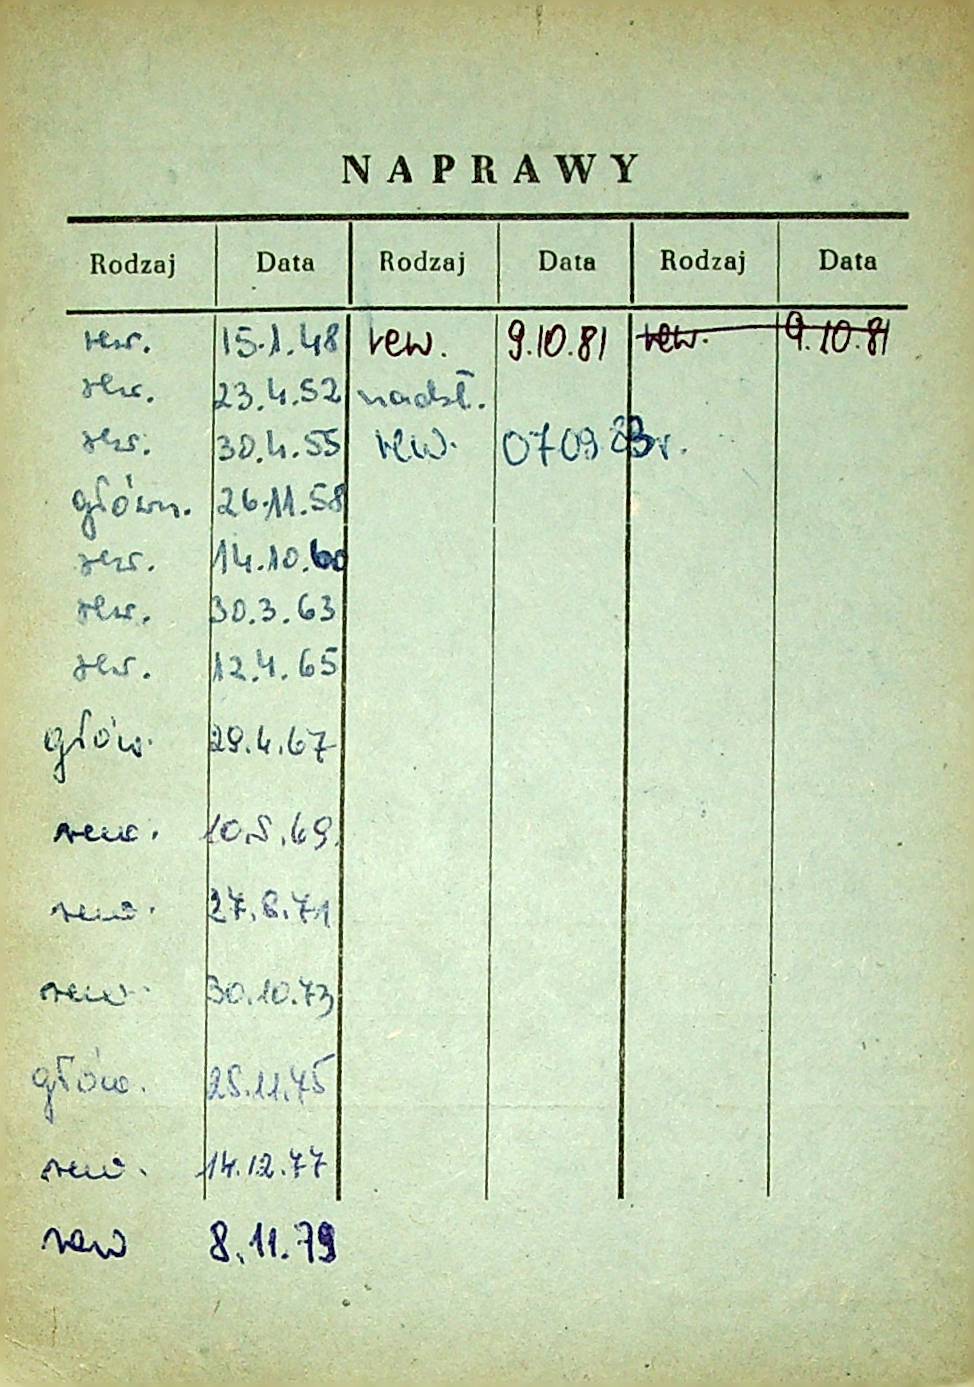 NAPRAWY
Rodzaj Data Rodzaj Data Rodzaj Data
rew. 15.1.48 rew. 9.10.81 rew. 9.10.81
rew. 23.4.52 nadst.
rew. 30.4.55 rew. 07 09 83r.
główn. 26.11.58
rew. 14.10.60
rew. 30.3.63
rew. 12.4.65
głów. 29.4.67
rew. 10.5.69.
rew. 27.8.71
rew. 30.10.73
głów. 25.11.75
rew. 14.12.77
rew 8.11.79